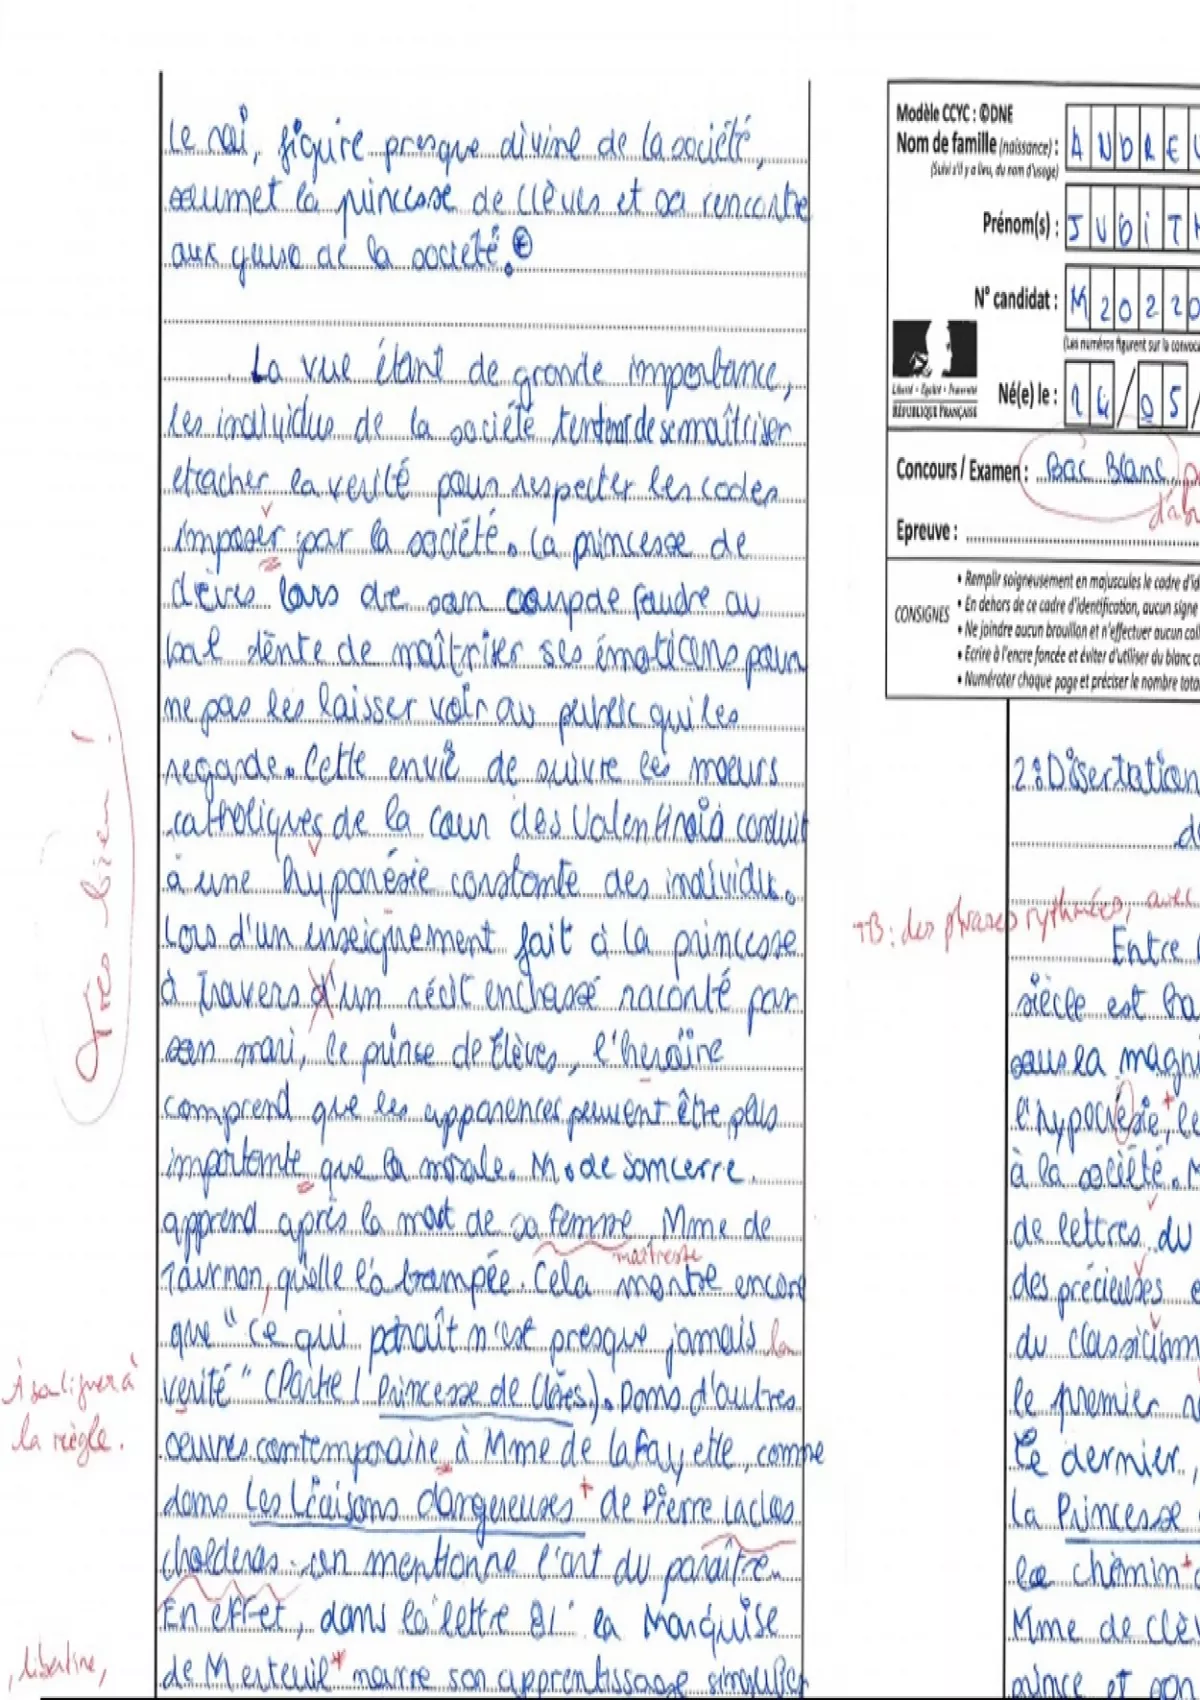 Le roi, figure presque divine de la société,
soumet la princesse de Clèves et sa rencontre
aux yeux de la société.
La vue étant de grande importance,
les individus de la société tentent de se maîtriser
et cacher la verité pour respecter les codes
imposer par la société. La princesse de
clèves lors de son coup de foudre au
bal tente de maîtriser ses émotions pour
ne pas les laisser voir au public qui les
regarde. Cette envie de suivre les moeurs
catholiques de la cour des Valentinois conduit
à une hyponésie constante des individu.
Lors d'un enseignement fait à la princesse
à travers d'un récit enchassé raconté par
son mari, le prince de Clèves, l'heroïre
comprend que les apparences peuvent être plus
importante que la morale. M. de Sancerre
apprend après la mort de sa femme Mme de
maitresse
Tournon, qu'elle l'a trompée. Cela montre encore
que "ce qui paraît n'est presque jamais la
verité" (Partie 1 Princesse de Clèes). Dans d'autres
À souligner à
la règle.
oeuvres contemporaine à Mme de Lafayette, comme
dans Les Liaisons dangereuses + de Pierre Laclos
choderas, on mentionne l'art du paraître.
En effet, dans la lettre 81 la Marquise
de Merteuil + narre son apprentissage
, libertine,
Très bien !
Modèle CCYC : ©DNE
Nom de famille (naissance) : A N D R E
(Suivi s'il y a lieu, du nom d'usage)
Prénom(s) : J U D I T H
N° candidat : M 2 0 2 2 0
(Les numéros figurent sur la convoca
Liberté • Égalité • Fraternité
RÉPUBLIQUE FRANÇAISE
Né(e) le : 14 / 05 /
Concours / Examen : Bac Blanc
Epreuve :
CONSIGNES
• Remplir soigneusement en majuscules le cadre d'id
• En dehors de ce cadre d'identification, aucun signe
• Ne joindre aucun brouillon et n'effectuer aucun coll
• Ecrire à l'encre foncée et éviter d'utiliser du blanc co
• Numéroter chaque page et préciser le nombre tota
2: Dissertation
TB : des phrases rythmées, avec
Entre
siècle est
sous la magni
l'hypocresie, le
à la société. M
de lettres du
des précieuses e
du classicism
le premier
Ce dernier,
la Princesse
le chemin
Mme de Clèv
prince et son